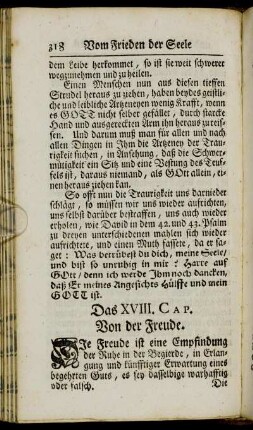 318 Vom Frieden der Seele
dem Leibe herkommet, so ist sie weit schwerer
wegzunehmen und zu heilen.
Einen Menschen nun aus diesen tieffen
Strudel heraus zu ziehen, haben beydes geistli-
che und leibliche Artzeneyen wenig Krafft, wenn
es GOTT nicht selber gefället, durch starcke
Hand und ausgereckten Arm ihn heraus zu reis-
sen. Und darum muß man für allen und nach
allen Dingen in Ihm die Artzeney der Trau-
rigkeit suchen, in Ansehung, daß die Schwer-
müthigkeit ein Sitz und eine Vestung des Teuf-
fels ist, daraus niemand, als GOtt allein, ei-
nen heraus ziehen kan.
So offt nun die Traurigkeit uns darnieder
schlägt, so müssen wir uns wieder aufrichten,
uns selbst darüber bestraffen, uns auch wieder
erholen, wie David in dem 42. und 43. Psalm
zu dreyen unterschiedenen mahlen sich wieder
aufrichtete, und einen Muth fassete, da er sa-
get: Was betrübest du dich, meine Seele/
und bist so unruhig in mir? Harre auf
GOtt / denn ich werde Ihm noch dancken,
daß Er meines Angesichts Hülffe und mein
GOTT ist.
Das XVIII. CAP.
Von der Freude.
DIe Freude ist eine Empfindung
der Ruhe in der Begierde, in Erlan-
gung und künfftiger Erwartung eines
begehrten Guts, es sey dasselbige warhafftig
oder falsch.
Die